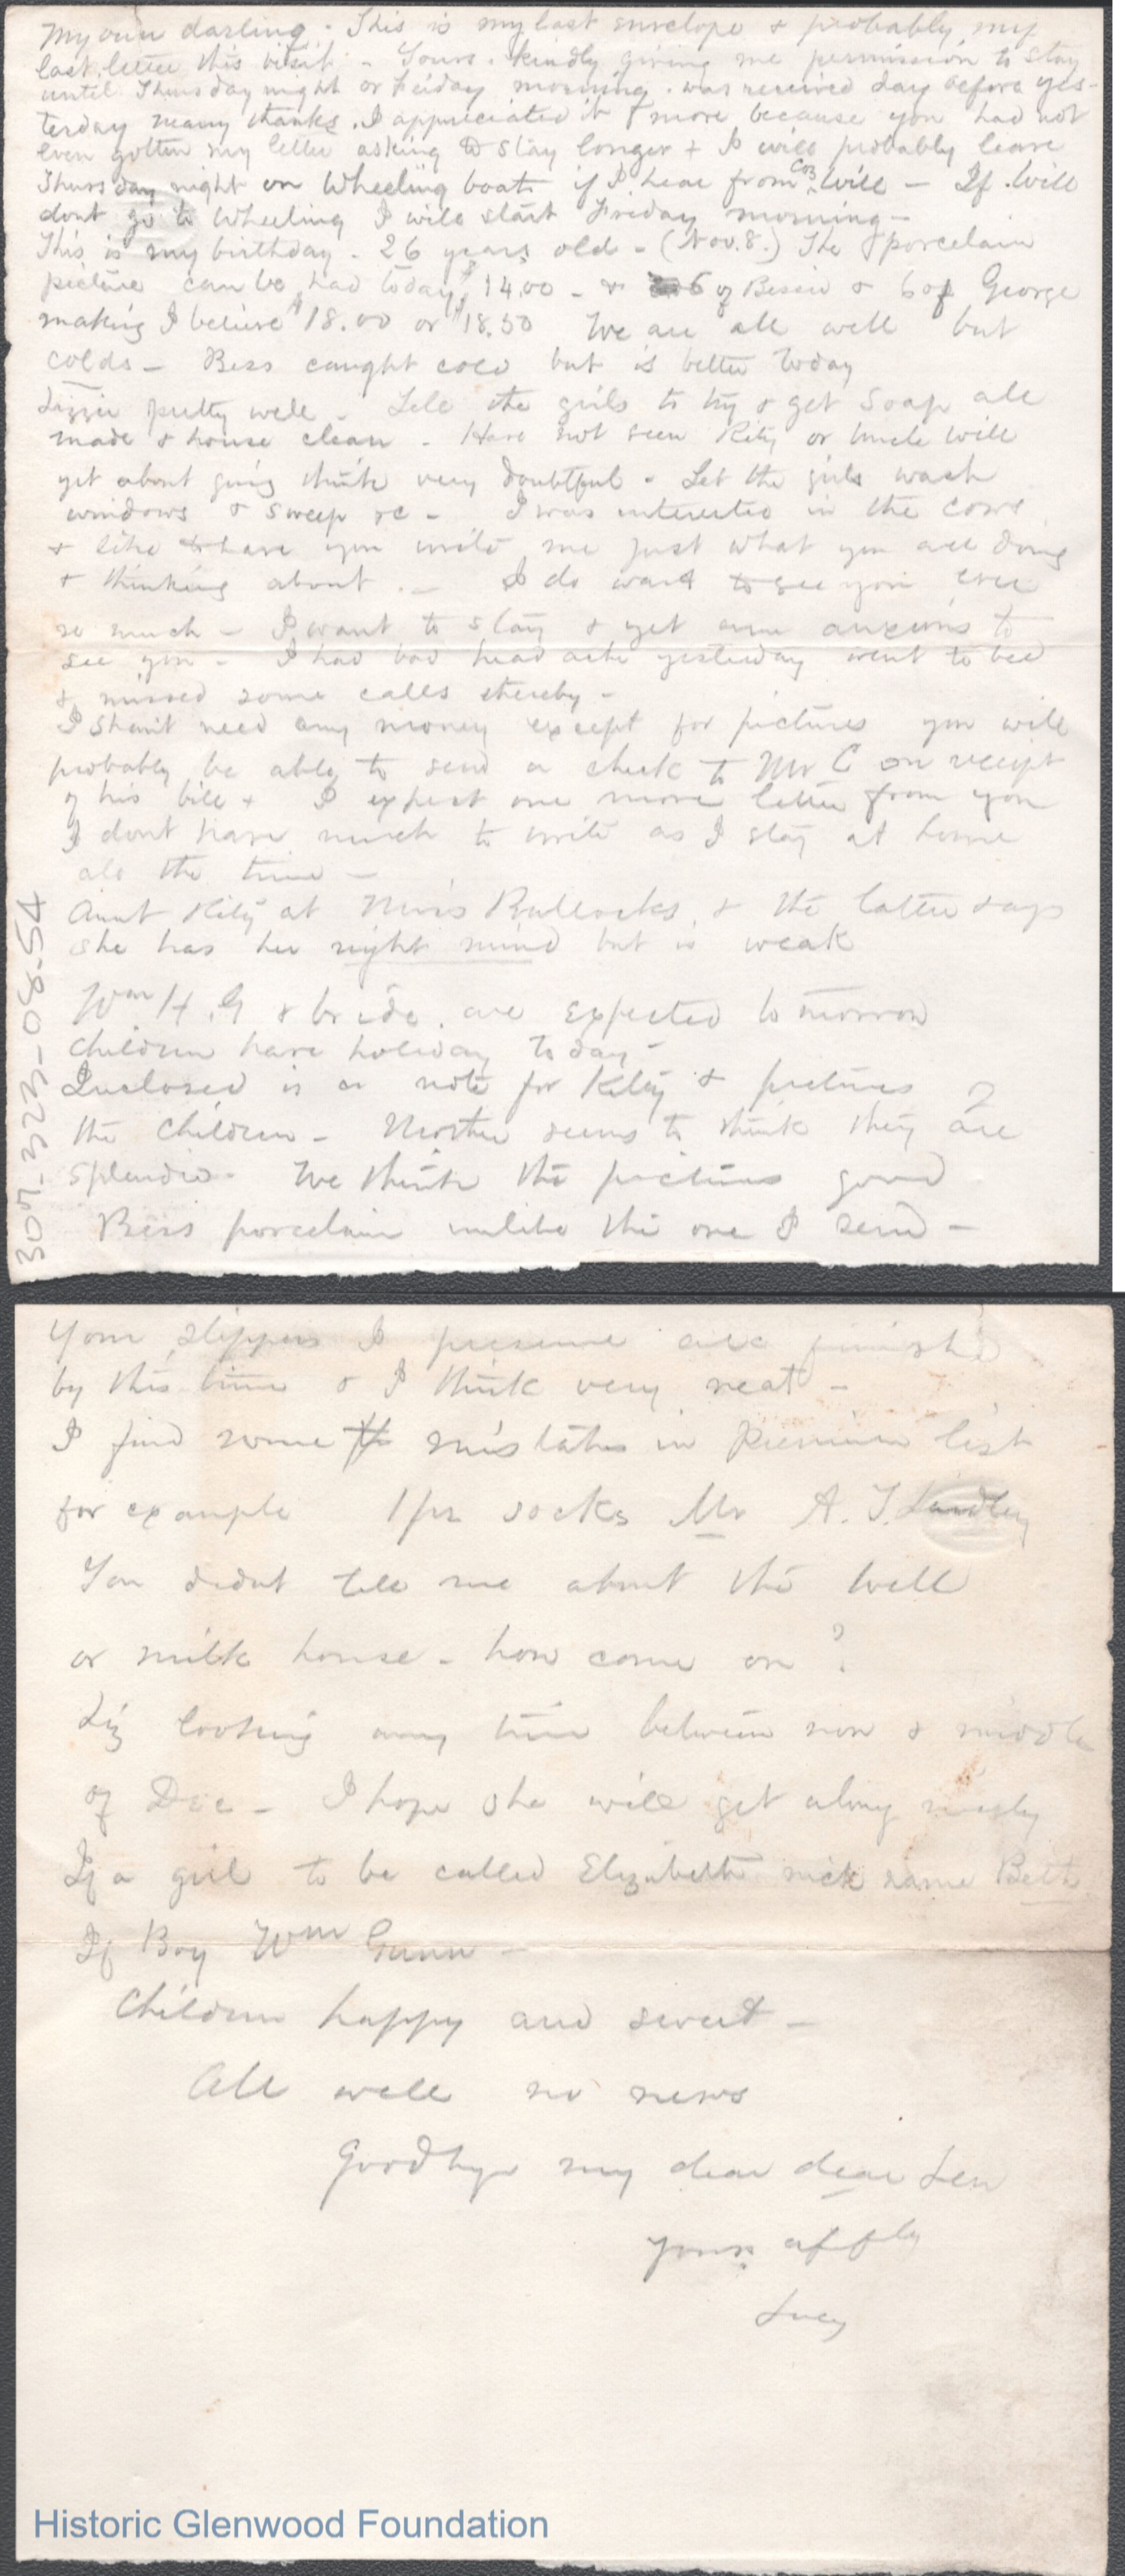 My own darling. This is my last envelope & probably my
last letter this visit - Yours. kindly giving me permission to stay
until Thursday night or Friday morning. was received day before yes-
terday many thanks. I appreciated it more because you had not
even gotten my letter asking to stay longer & I will probably leave
Thursday night on Wheeling boat if I hear from Coz Will - If Will
dont go to Wheeling I will start Friday morning -
This is my birthday - 26 years old - (Nov. 8.) The porcelain
picture can be had today $14.00 - & 6 of Bessie & 6 of George
making I believe $18.00 or $18.50 We are all well but
colds - Bess caught cold but is better today
Lizzie pretty well - Tell the girls to try & get soap all
made & house clean - Have not seen Kity or Uncle Will
yet about going think very doubtful - Let the girls wash
windows & sweep &c - I was interested in the cows
& like to have you write me just what you are doing
& thinking about. - I do want to see you ever
so much - I want to stay & yet am anxious to
see you - I had bad head ache yesterday went to bed
& missed some calls thereby -
I shan't need any money except for pictures you will
probably be able to send a check to Mr C on receipt
of his bill & I expect one more letter from you
I dont have much to write as I stay at home
all the time -
Aunt Kity at Miss Bullocks & the latter says
she has her right mind but is weak
Wm H. G & bride. are expected tomorrow
Children have holiday to day -
Inclosed is a note for Kity & pictures of
the children - Mother seems to think they are
splendid - We think the pictures good
Bess porcelain unlike the one I send -
307-323-08-54
Your slippers I presume are finished
by this time & I think very neat -
I find some mistakes in Premium list
for example 1 pr socks Mr A. T. Lindley
You didnt tell me about the well
or milk house - how come on?
Liz looking any time between now & middle
of Dec - I hope she will get along nicely
If a girl to be called Elizabeth nick name Beth
If Boy Wm Gunn -
Children happy and sweet -
All well no news
Goodbye my dear dear Len
Yours affly
Lucy
Historic Glenwood Foundation